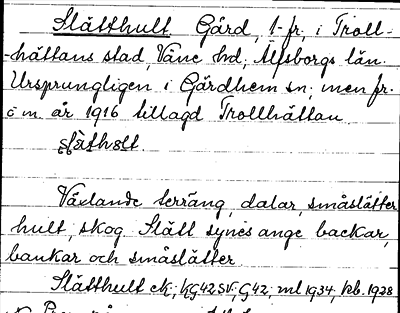 Slätthult Gård, 1 fr, i Troll-
-hättans stad, Väne hd, Älfsborgs län.
Ursprungligen i Gärdhem sn; men fr.
o m år 1916 tillagd Trollhättan
Växlande terräng, dalar, småslätter
hult, skog. Slätt synes ange backar,
bankar och småslätter
Slätthult ek; KG42SV, G42; ml 1934, rb. 1928